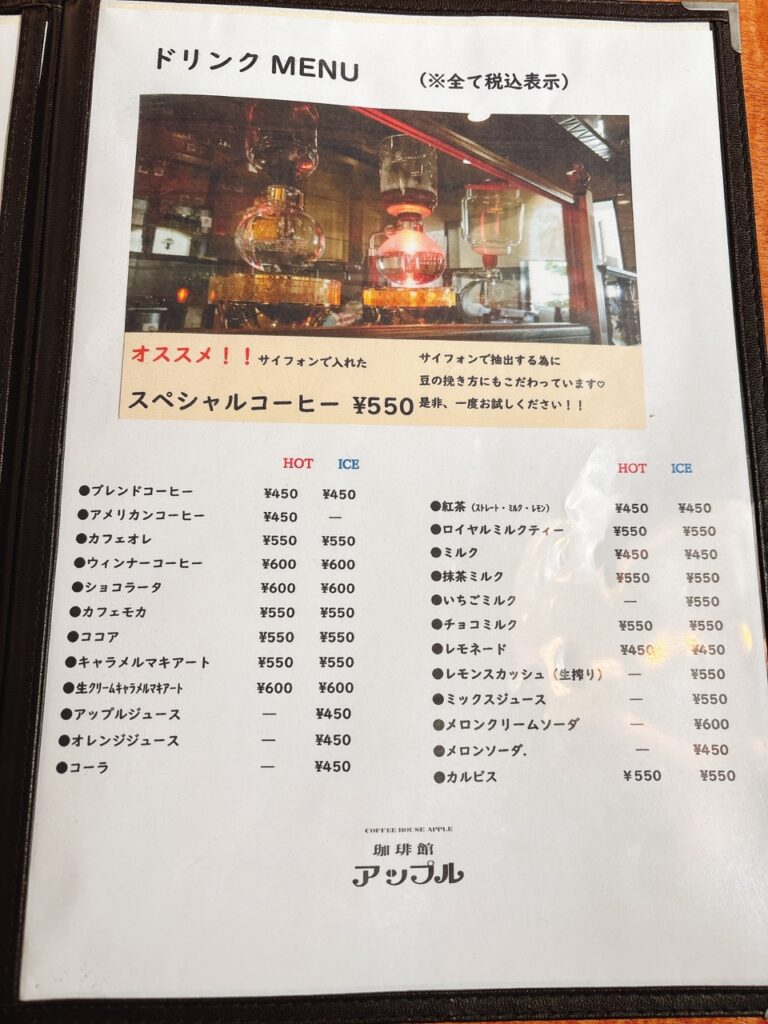 ドリンク MENU (※全て税込表示)
オススメ！！サイフォンで入れた
スペシャルコーヒー ¥550
サイフォンで抽出する為に
豆の挽き方にもこだわっています♡
是非、一度お試しください！！
HOT ICE
●ブレンドコーヒー ¥450 ¥450
●アメリカンコーヒー ¥450 —
●カフェオレ ¥550 ¥550
●ウィンナーコーヒー ¥600 ¥600
●ショコラータ ¥600 ¥600
●カフェモカ ¥550 ¥550
●ココア ¥550 ¥550
●キャラメルマキアート ¥550 ¥550
●生クリームキャラメルマキアート ¥600 ¥600
●アップルジュース — ¥450
●オレンジジュース — ¥450
●コーラ — ¥450
HOT ICE
●紅茶（ストレート・ミルク・レモン） ¥450 ¥450
●ロイヤルミルクティー ¥550 ¥550
●ミルク ¥450 ¥450
●抹茶ミルク ¥550 ¥550
●いちごミルク — ¥550
●チョコミルク ¥550 ¥550
●レモネード ¥450 ¥450
●レモンスカッシュ（生搾り） — ¥550
●ミックスジュース — ¥550
●メロンクリームソーダ — ¥600
●メロンソーダ. — ¥450
●カルピス ¥550 ¥550
COFFEE HOUSE APPLE
珈琲館
アップル